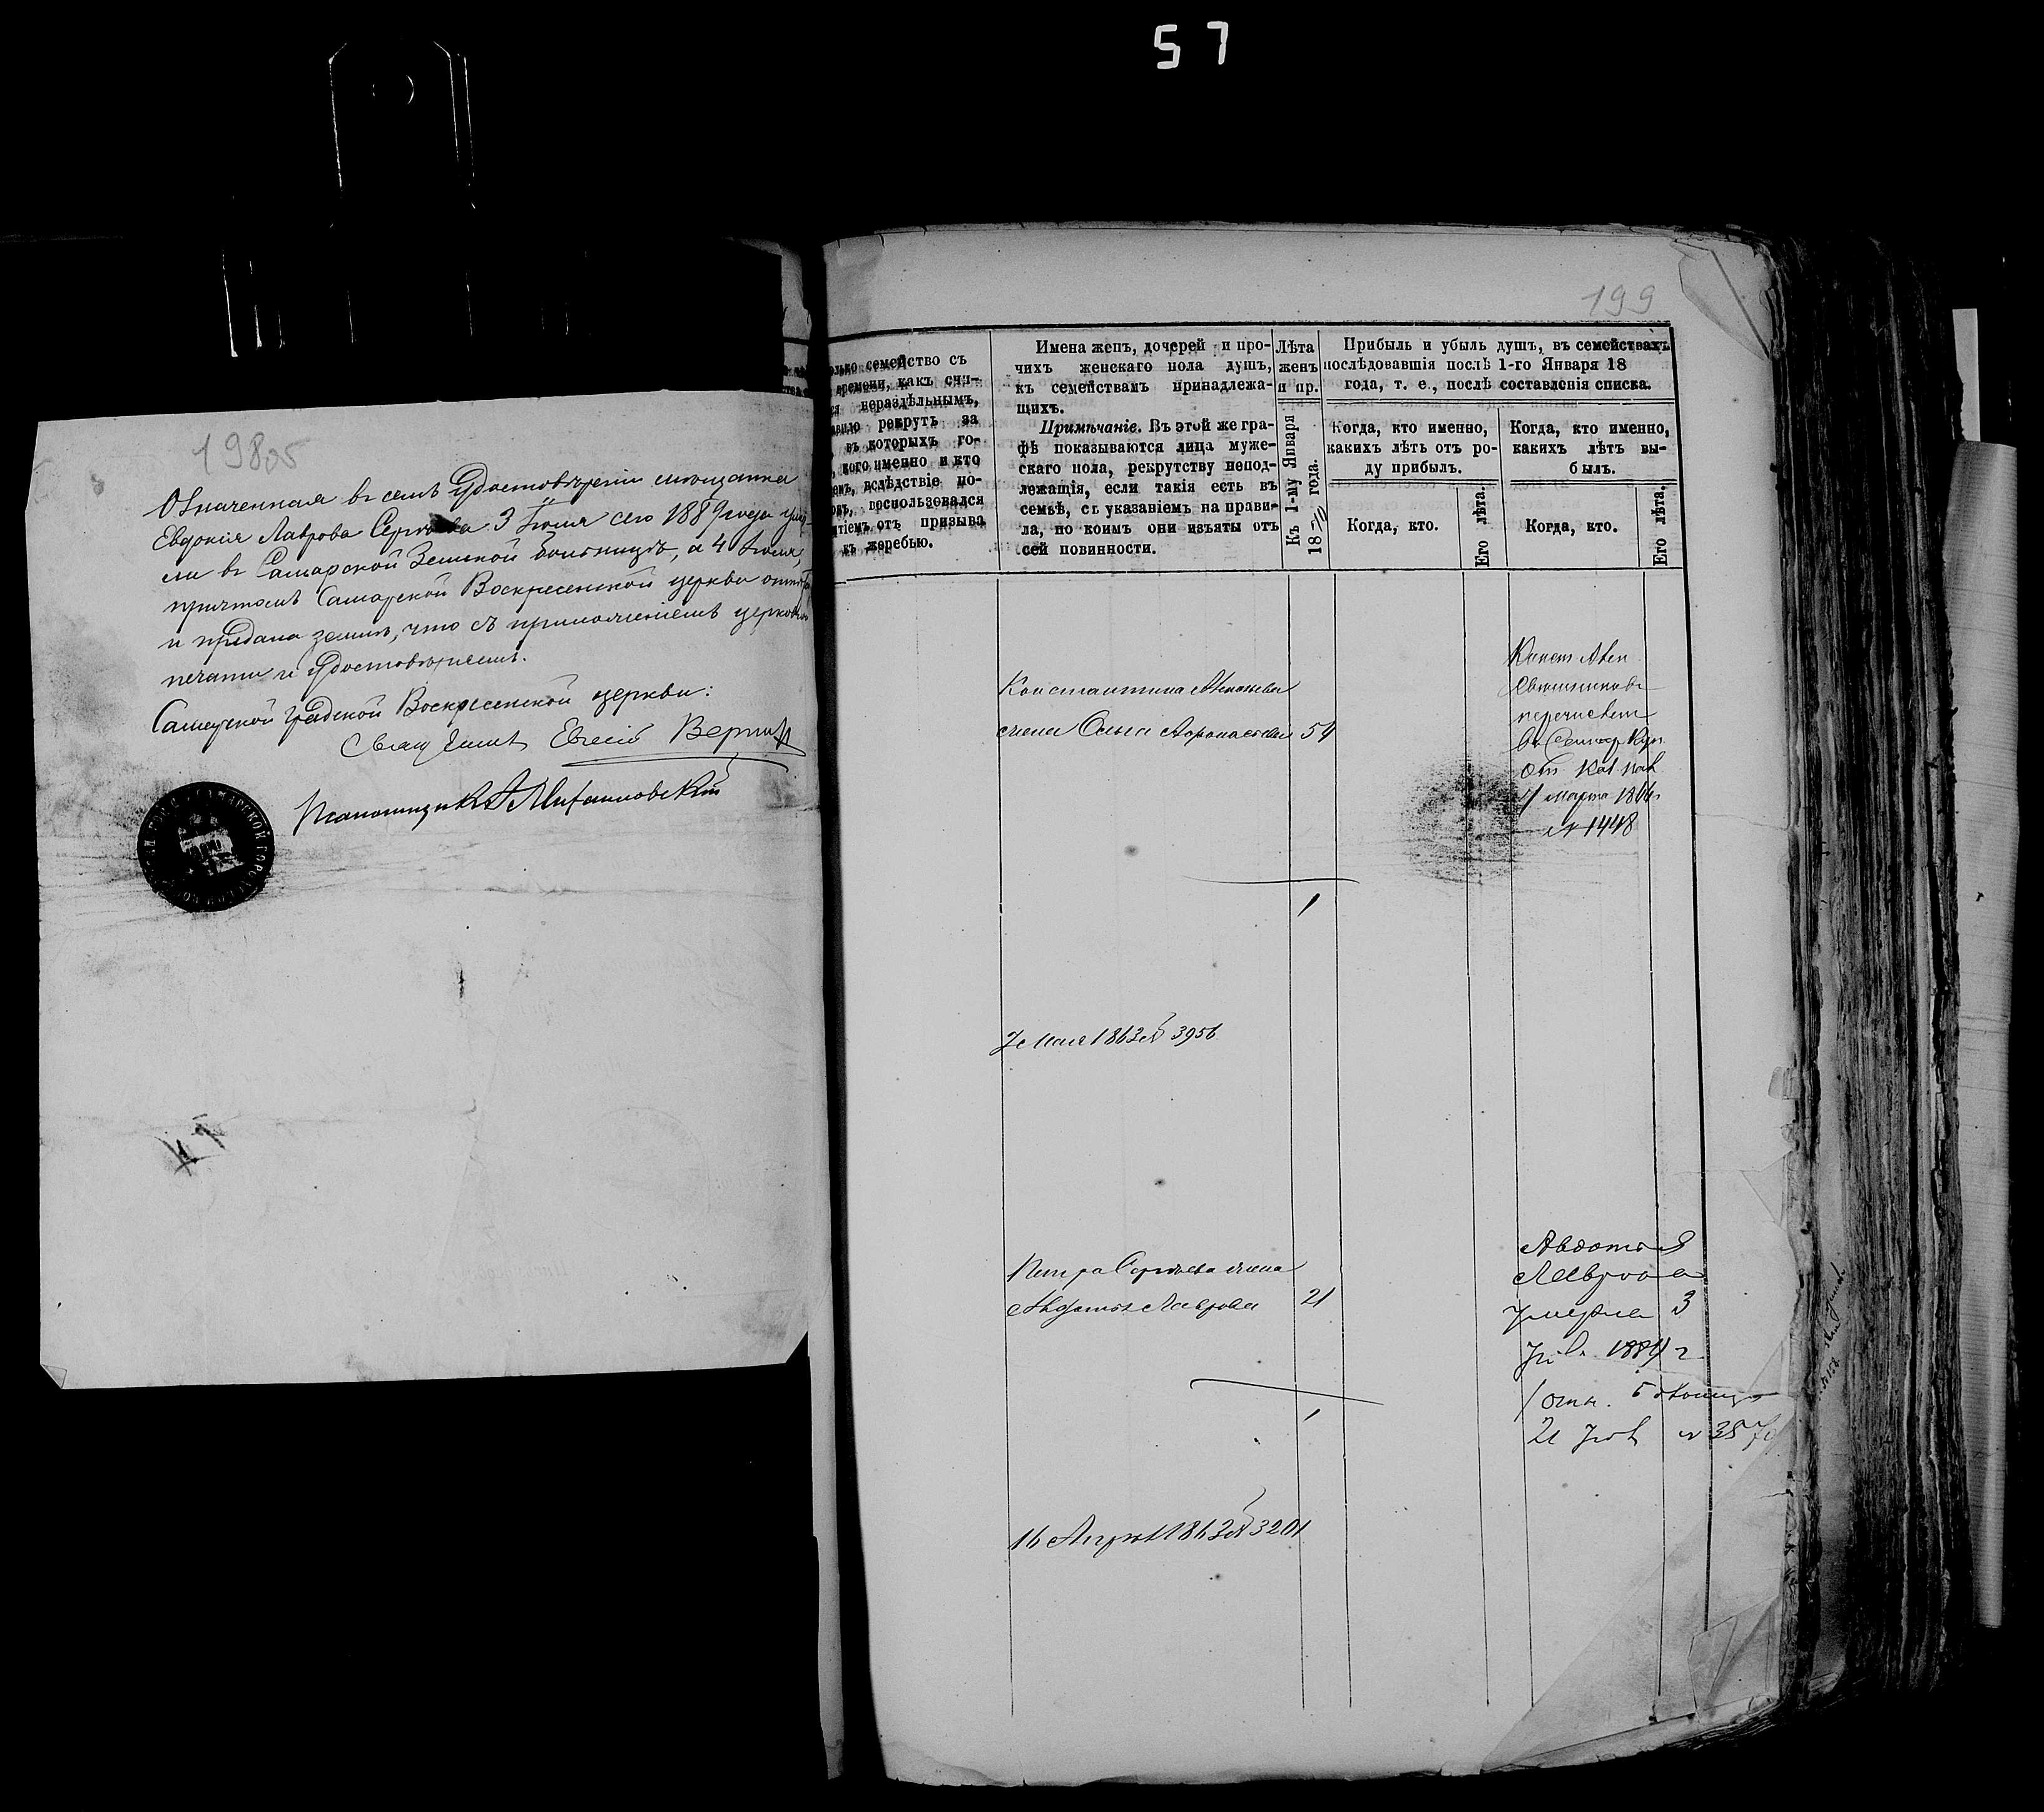 57
198об
Означенная въ семъ Удостовѣреніи мѣщанка
Евдокія Лаврова Сергѣева 3 Іюля сего 1889 года умер-
ла въ Самарской Земской больницѣ, а 4 Іюля,
причтомъ Самарской Воскресенской церкви отпѣта
и предана землѣ, что съ приложеніемъ церковной
печати и удостовѣряемъ.
Самарской градской Воскресенской церкви:
Священникъ
Псаломщикъ
199
олько семейство съ
времени, какъ счи-
ся нераздѣльнымъ,
рекрутъ за
въ которыхъ го-
кого именно и кто
вслѣдствіе по-
воспользовался
отъ призыва
къ жеребью.
Имена женъ, дочерей и про-
чихъ женскаго пола душъ,
къ семействамъ принадлежа-
щихъ.
Примѣчаніе. Въ этой же гра-
фѣ показываются лица муже-
скаго пола, рекрутству непод-
лежащія, если такія есть въ
семьѣ, съ указаніемъ на прави-
ла, по коимъ они изъяты отъ
сей повинности.
Лѣта
женъ
и пр.
Къ 1-му Января
1870 года.
Прибыль и убыль душъ, въ семействахъ
послѣдовавшія послѣ 1-го Января 18
года, т. е., послѣ составленія списка.
Когда, кто именно,
какихъ лѣтъ отъ ро-
ду прибылъ.
Когда, кто.
Его лѣта.
Когда, кто именно,
какихъ лѣтъ вы-
былъ.
Когда, кто.
Его лѣта.
Константина
жена Ольга Афонасьева 54
перечислен
Марта
№ 1448
1
7 Мая 1863 № 3956
Петра Сергѣева жена
Авдотья Лаврова 21
Авдотья
Лаврова
умерла 3
Іюля 1889 г
21
1
16 1863 № 3201